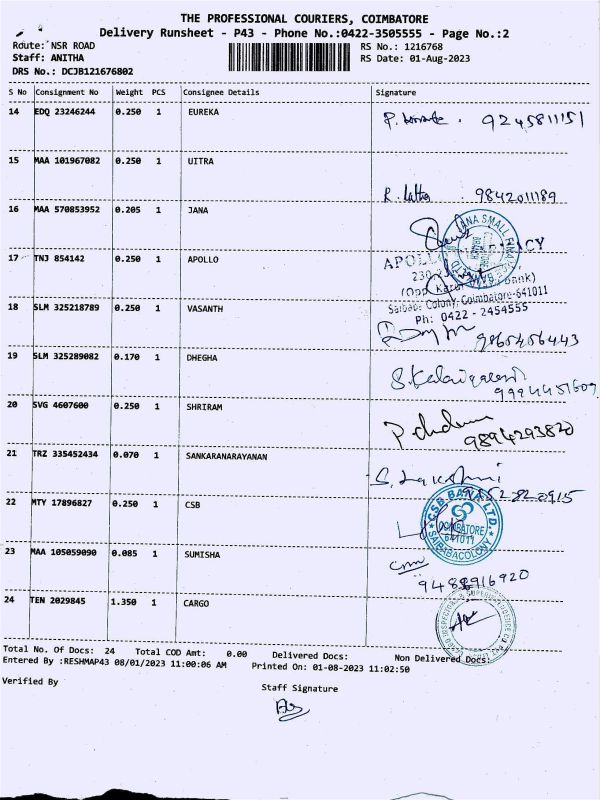 THE PROFESSIONAL COURIERS, COIMBATORE
Delivery Runsheet - P43 - Phone No.:0422-3505555 - Page No.:2
Route: NSR ROAD RS No.: 1216768
Staff: ANITHA RS Date: 01-Aug-2023
DRS No.: DCJB121676802
S No Consignment No Weight PCS Consignee Details Signature
14 EDQ 23246244 0.250 1 EUREKA 9245811151
15 MAA 101967082 0.250 1 UITRA
R. Latha 9842011189
16 MAA 570853952 0.205 1 JANA
JANA SMALL FINANCE BANK LTD
17 TNJ 854142 0.250 1 APOLLO APOLLO
230
(Opp. Bank)
Saibaba Colony, Coimbatore-641011
Ph: 0422 - 2454555
18 SLM 325218789 0.250 1 VASANTH
9865456443
19 SLM 325289082 0.170 1 DHEGHA
9994451609
20 SVG 4607600 0.250 1 SHRIRAM
9894293820
21 TRZ 335452434 0.070 1 SANKARANARAYANAN
S. Lakshmi
22 MTY 17896827 0.250 1 CSB
CSB BANK LTD.
COIMBATORE
641011
SAIBABACOLONY
23 MAA 105059090 0.085 1 SUMISHA
9488916920
24 TEN 2029845 1.350 1 CARGO
Total No. Of Docs: 24 Total COD Amt: 0.00 Delivered Docs: Non Delivered Docs:
Entered By :RESHMAP43 08/01/2023 11:00:06 AM Printed On: 01-08-2023 11:02:50
Verified By Staff Signature